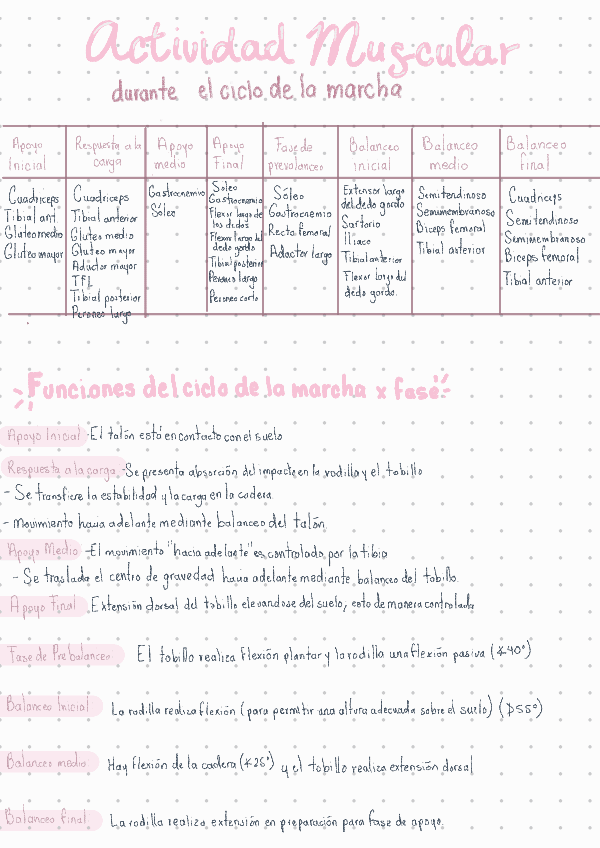 Actividad Muscular
durante el ciclo de la marcha
Apoyo Inicial
Cuadriceps
Tibial ant.
Gluteo medio
Gluteo mayor
Respuesta a la carga
Cuadriceps
Tibial anterior
Gluteo medio
Gluteo mayor
Aductor mayor
TFL
Tibial posterior
Peroneo largo
Apoyo medio
Gastrocnemio
Sóleo
Apoyo Final
Soleo
Gastrocnemio
Flexor largo de
los dedos
Flexor largo del
dedo gordo
Tibial posterior
Peroneo largo
Peroneo corto
Fase de prevalanceo
Sóleo
Gastrocnemio
Recto femoral
Aductor largo
Balanceo inicial
Extensor largo
del dedo gordo
Sartorio
Iliaco
Tibial anterior
Flexor largo del
dedo gordo.
Balanceo medio
Semitendinoso
Semimembranoso
Biceps femoral
Tibial anterior
Balanceo final
Cuadriceps
Semitendinoso
Semimembranoso
Biceps femoral
Tibial anterior
Funciones del ciclo de la marcha x fase
Apoyo Inicial -El talón está en contacto con el suelo
Respuesta a la carga -Se presenta absorción del impacto en la rodilla y el tobillo
- Se transfiere la estabilidad y la carga en la cadera
- Movimiento hacia adelante mediante balanceo del talón
Apoyo Medio -El movimiento "hacia adelante" es controlado por la tibia
- Se traslada el centro de gravedad hacia adelante mediante balanceo del tobillo.
Apoyo Final Extensión dorsal del tobillo elevandose del suelo, esto de manera controlada
Fase de Prebalanceo El tobillo realiza flexión plantar y la rodilla una flexión pasiva (∡40°)
Balanceo Inicial La rodilla realiza flexión (para permitir una altura adecuada sobre el suelo) (∡55°)
Balanceo medio Hay flexión de la cadera (∡25°) y el tobillo realiza extensión dorsal
Balanceo final La rodilla realiza extensión en preparación para fase de apoyo.